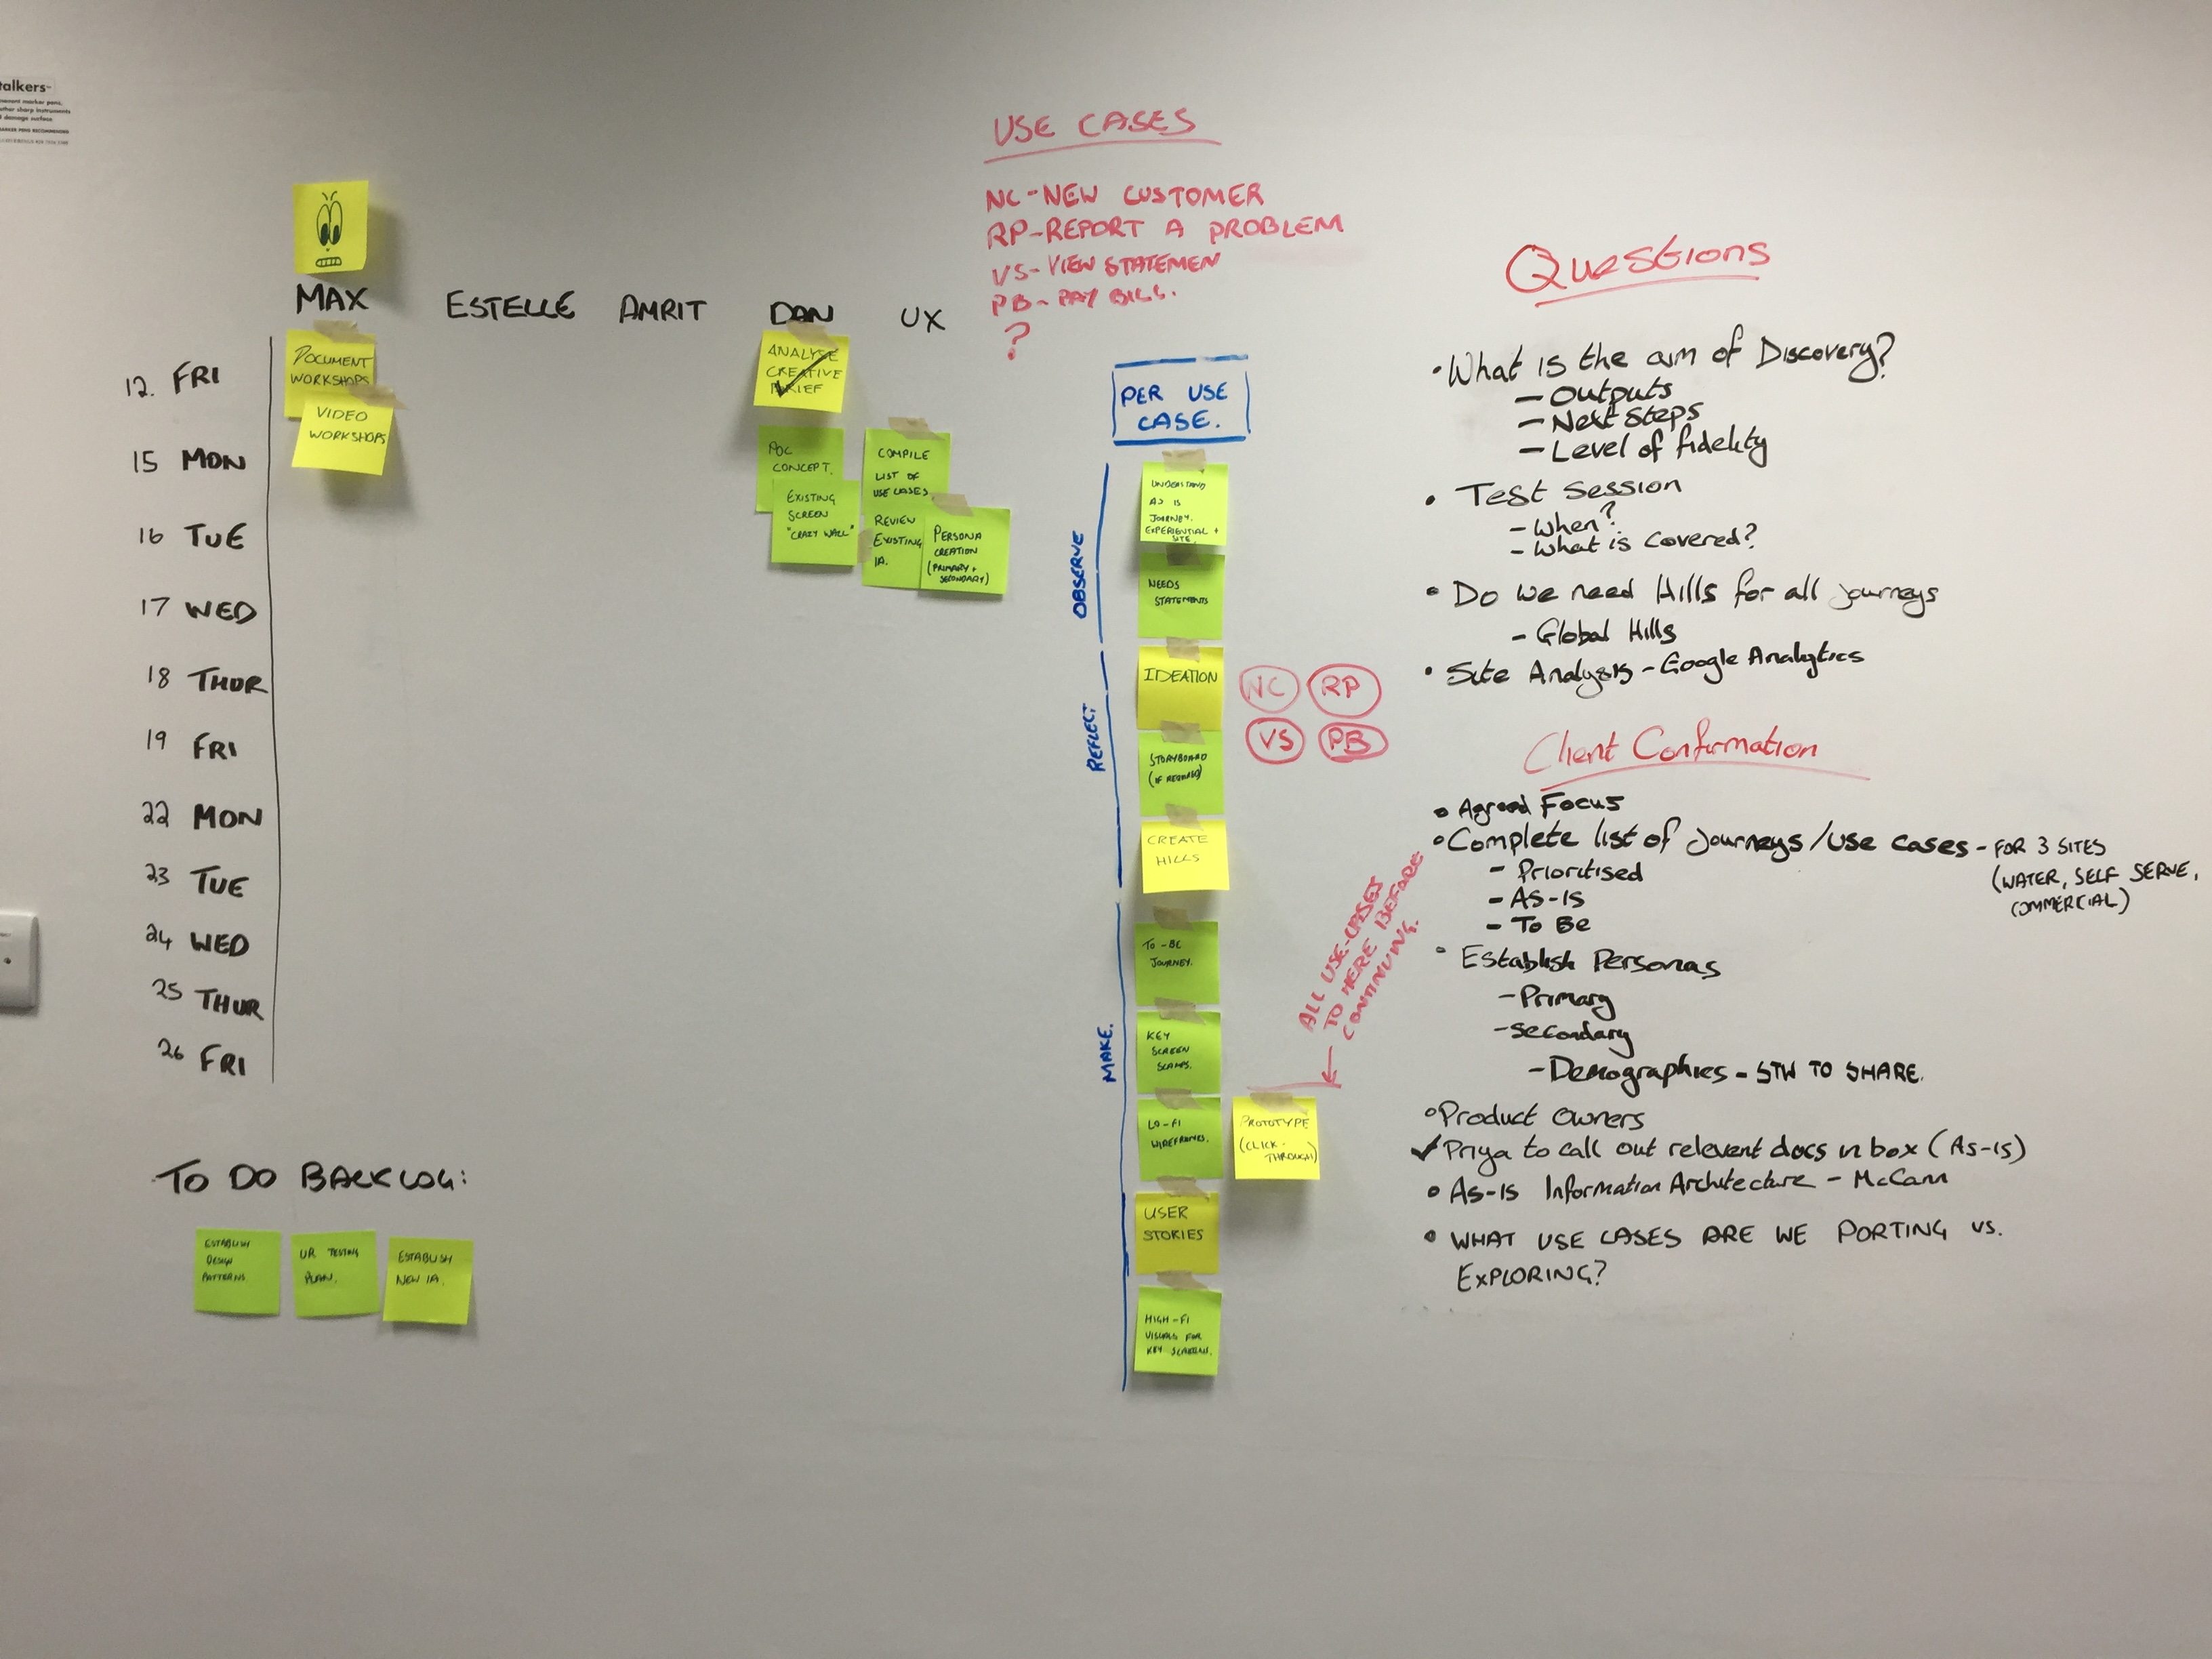 talkers
USE CASES
NC-NEW CUSTOMER
RP-REPORT A PROBLEM
VS-VIEW STATEMEN
PB-PAY BILL.
?
MAX
ESTELLE
AMRIT
DAN
UX
12. FRI
15 MON
16 TUE
17 WED
18 THUR
19 FRI
22 MON
23 TUE
24 WED
25 THUR
26 FRI
DOCUMENT
WORKSHOPS
VIDEO
WORKSHOPS
ANALYSE
CREATIVE
BRIEF
POC
CONCEPT.
EXISTING
SCREEN
"CRAZY WALL"
COMPILE
LIST OF
USE CASES
REVIEW
EXISTING
IA.
PERSONA
CREATION
(PRIMARY +
SECONDARY)
TO DO BACKLOG:
ESTABLISH
DESIGN
PATTERNS.
UR TESTING
PLAN.
ESTABLISH
NEW IA.
PER USE
CASE.
OBSERVE
REFLECT
MAKE.
UNDERSTAND
AS IS
JOURNEY.
EXPERIENTIAL +
SITE.
NEEDS
STATEMENTS
IDEATION
NC
RP
VS
PB
STORYBOARD
(IF REQUIRED)
CREATE
HILLS
TO-BE
JOURNEY.
KEY
SCREEN
SCAMPS.
LO-FI
WIREFRAMES.
PROTOTYPE
(CLICK-
THROUGH)
USER
STORIES
HIGH-FI
VISUALS FOR
KEY SCREENS.
ALL USE-CASES
TO HERE BEFORE
CONTINUING.
Questions
•What is the aim of Discovery?
- Outputs
- Next Steps
- Level of fidelity
• Test Session
- When?
- What is Covered?
• Do we need Hills for all journeys
- Global Hills
• Site Analysis - Google Analytics
Client Confirmation
• Agreed Focus
•Complete list of journeys/use cases - FOR 3 SITES
(WATER, SELF SERVE,
COMMERCIAL)
- Prioritised
- As-is
- To Be
• Establish Personas
- Primary
- Secondary
- Demographics - STW TO SHARE.
•Product Owners
✓Priya to call out relevent docs in box (As-is)
• As-is Information Architecture - McCann
• WHAT USE CASES ARE WE PORTING VS.
EXPLORING?